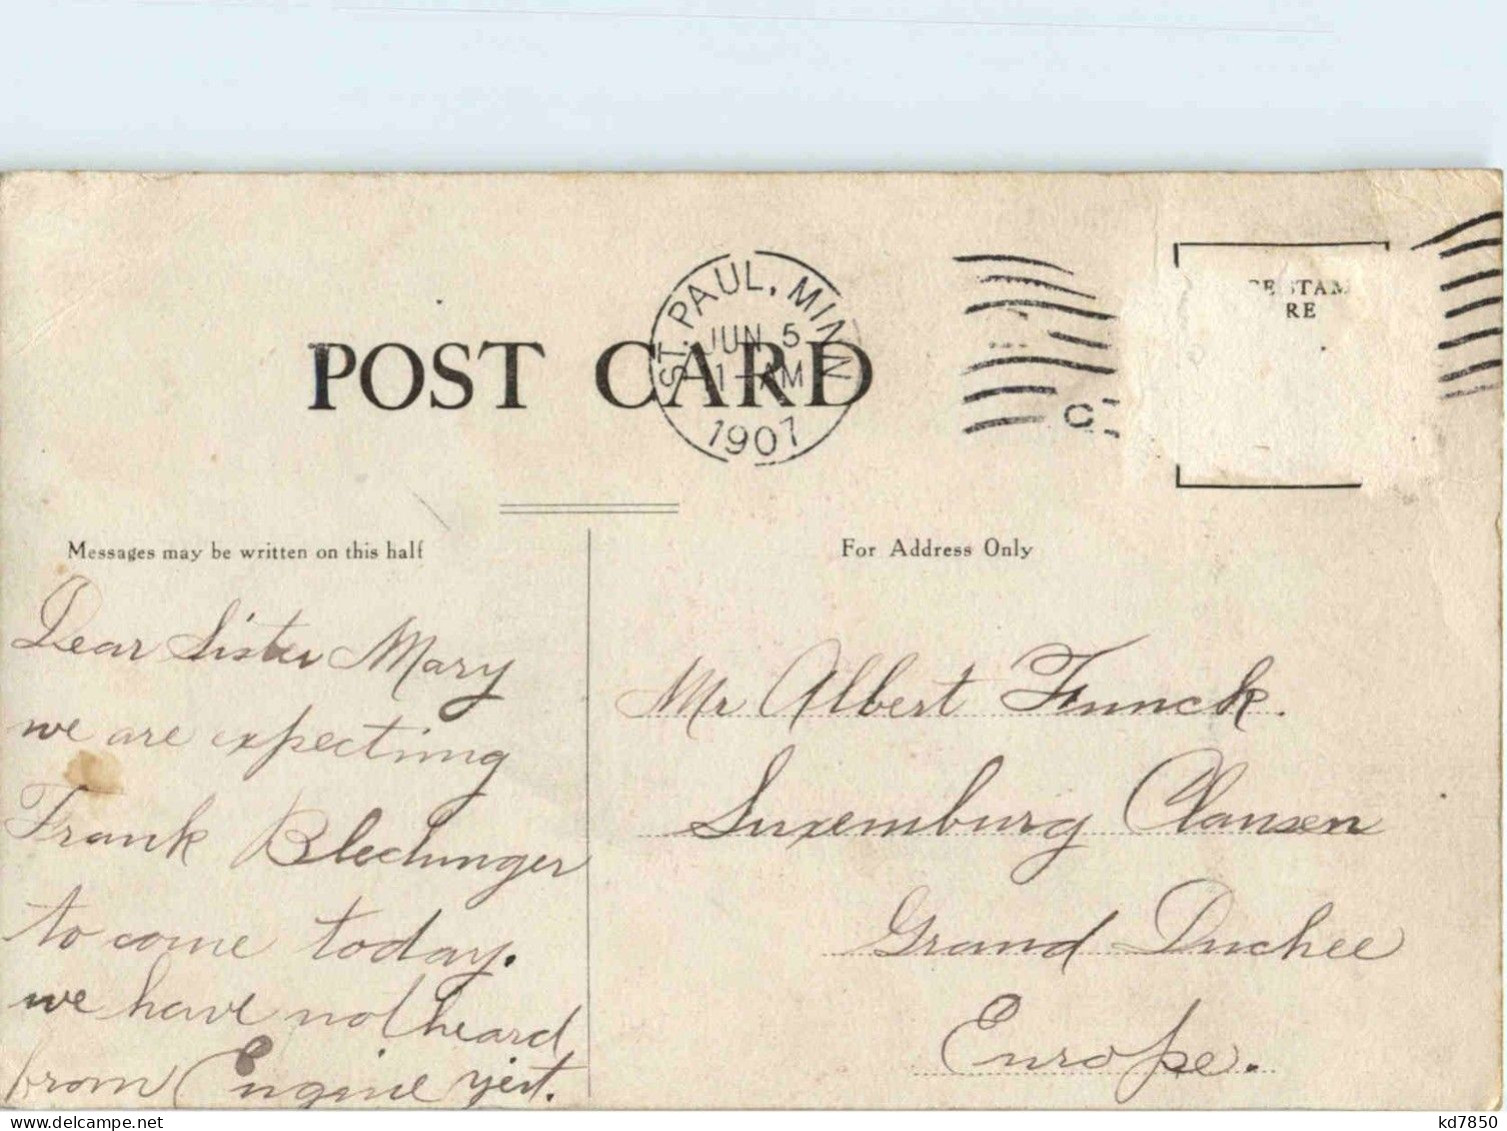 ST. PAUL, MINN
JUN 5
1-AM
1907
POST CARD
CE STAM
RE
C
Messages may be written on this half
For Address Only
Dear Sister Mary
we are expecting
Frank Blechinger
to come today.
we have not heard
from Engine yert.
Mr Albert Funck.
Luxemburg Clausen
Grand Duchee
Europe.
kd7850